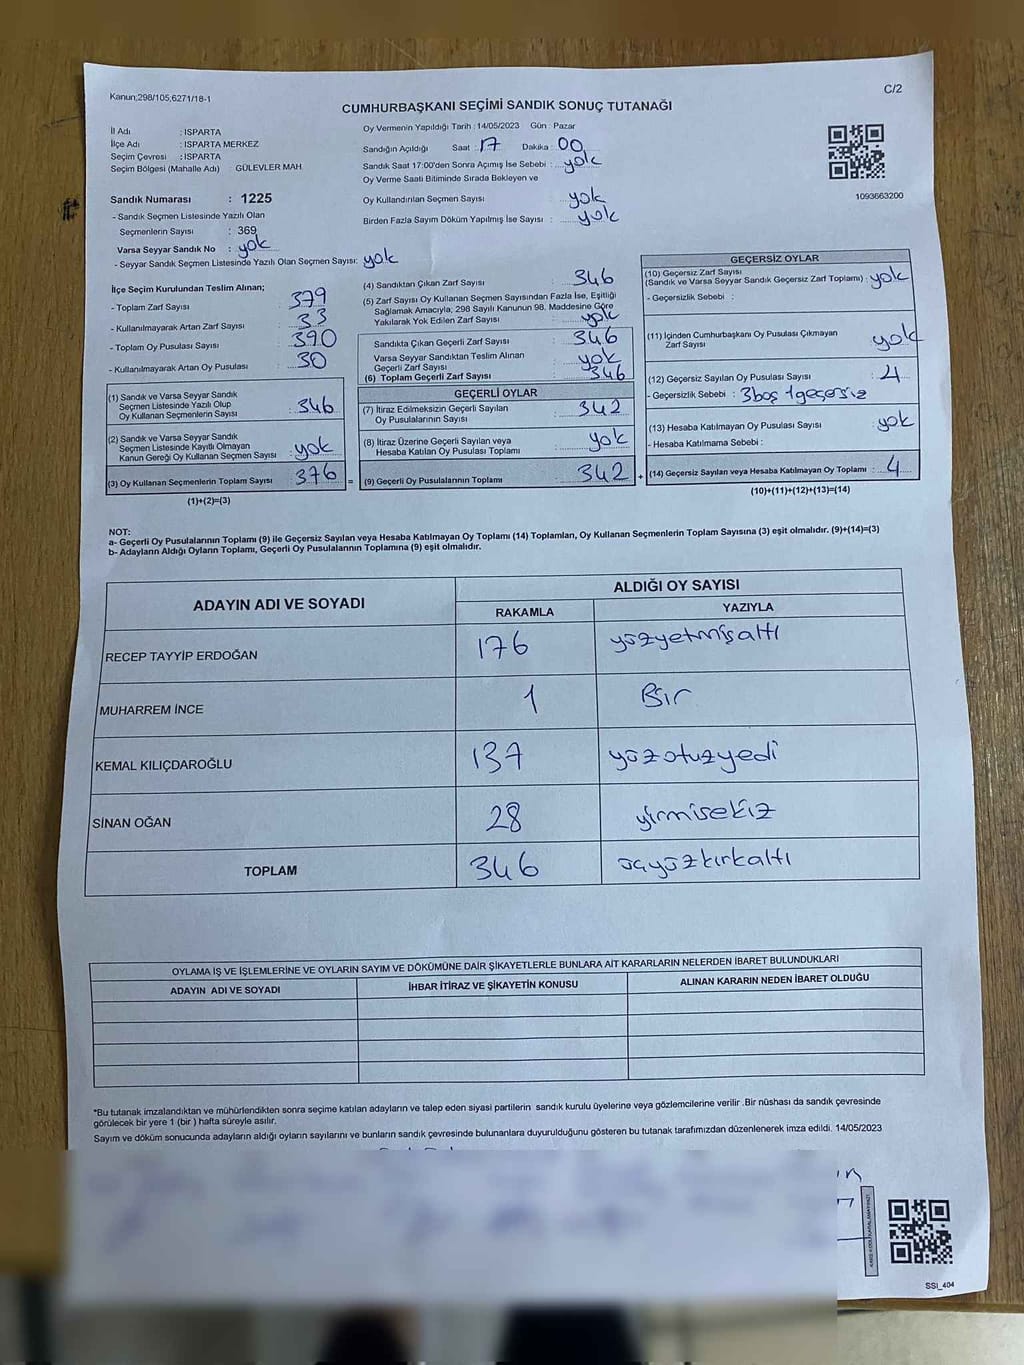 Kanun;298/105,6271/18-1
C/2
CUMHURBAŞKANI SEÇİMİ SANDIK SONUÇ TUTANAĞI
İl Adı : ISPARTA
İlçe Adı : ISPARTA MERKEZ
Seçim Çevresi : ISPARTA
Seçim Bölgesi (Mahalle Adı) GÜLEVLER MAH.
Oy Vermenin Yapıldığı Tarih : 14/05/2023 Gün : Pazar
Sandığın Açıldığı Saat : 17 Dakika : 00
Sandık Saat 17:00'den Sonra Açımış İse Sebebi : yok
Oy Verme Saati Bitiminde Sırada Bekleyen ve
Oy Kullandırılan Seçmen Sayısı : yok
Birden Fazla Sayım Döküm Yapılmış İse Sayısı : yok
1093663200
Sandık Numarası : 1225
- Sandık Seçmen Listesinde Yazılı Olan
Seçmenlerin Sayısı : 369
Varsa Seyyar Sandık No : yok
- Seyyar Sandık Seçmen Listesinde Yazılı Olan Seçmen Sayısı: yok
İlçe Seçim Kurulundan Teslim Alınan;
- Toplam Zarf Sayısı : 379
- Kullanılmayarak Artan Zarf Sayısı : 33
- Toplam Oy Pusulası Sayısı : 390
- Kullanılmayarak Artan Oy Pusulası : 30
(1) Sandık ve Varsa Seyyar Sandık
Seçmen Listesinde Yazılı Olup
Oy Kullanan Seçmenlerin Sayısı : 346
(2) Sandık ve Varsa Seyyar Sandık
Seçmen Listesinde Kayıtlı Olmayan
Kanun Gereği Oy Kullanan Seçmen Sayısı : yok
(3) Oy Kullanan Seçmenlerin Toplam Sayısı : 376 =
(1)+(2)=(3)
(4) Sandıktan Çıkan Zarf Sayısı : 346
(5) Zarf Sayısı Oy Kullanan Seçmen Sayısından Fazla İse, Eşitliği
Sağlamak Amacıyla; 298 Sayılı Kanunun 98. Maddesine Göre
Yakılarak Yok Edilen Zarf Sayısı : yok
Sandıkta Çıkan Geçerli Zarf Sayısı : 346
Varsa Seyyar Sandıktan Teslim Alınan
Geçerli Zarf Sayısı : yok
(6) Toplam Geçerli Zarf Sayısı : 346
GEÇERLİ OYLAR
(7) İtiraz Edilmeksizin Geçerli Sayılan
Oy Pusulalarının Sayısı : 342
(8) İtiraz Üzerine Geçerli Sayılan veya
Hesaba Katılan Oy Pusulası Toplamı : yok
(9) Geçerli Oy Pusulalarının Toplamı : 342 +
GEÇERSİZ OYLAR
(10) Geçersiz Zarf Sayısı
(Sandık ve Varsa Seyyar Sandık Geçersiz Zarf Toplamı) : yok
- Geçersizlik Sebebi :
(11) İçinden Cumhurbaşkanı Oy Pusulası Çıkmayan
Zarf Sayısı : yok
(12) Geçersiz Sayılan Oy Pusulası Sayısı : 4
- Geçersizlik Sebebi : 3boş 1geçersiz
(13) Hesaba Katılmayan Oy Pusulası Sayısı : yok
- Hesaba Katılmama Sebebi :
(14) Geçersiz Sayılan veya Hesaba Katılmayan Oy Toplamı : 4
(10)+(11)+(12)+(13)=(14)
NOT:
a- Geçerli Oy Pusulalarının Toplamı (9) ile Geçersiz Sayılan veya Hesaba Katılmayan Oy Toplamı (14) Toplamları, Oy Kullanan Seçmenlerin Toplam Sayısına (3) eşit olmalıdır. (9)+(14)=(3)
b- Adayların Aldığı Oyların Toplamı, Geçerli Oy Pusulalarının Toplamına (9) eşit olmalıdır.
ADAYIN ADI VE SOYADI
ALDIĞI OY SAYISI
RAKAMLA YAZIYLA
RECEP TAYYİP ERDOĞAN 176 yüzyetmişaltı
MUHARREM İNCE 1 Bir
KEMAL KILIÇDAROĞLU 137 yüzotuzyedi
SİNAN OĞAN 28 yirmisekiz
TOPLAM 346 üçyüzkırkaltı
OYLAMA İŞ VE İŞLEMLERİNE VE OYLARIN SAYIM VE DÖKÜMÜNE DAİR ŞİKAYETLERLE BUNLARA AİT KARARLARIN NELERDEN İBARET BULUNDUKLARI
ADAYIN ADI VE SOYADI İHBAR İTİRAZ VE ŞİKAYETİN KONUSU ALINAN KARARIN NEDEN İBARET OLDUĞU
*Bu tutanak imzalandıktan ve mühürlendikten sonra seçime katılan adayların ve talep eden siyasi partilerin sandık kurulu üyelerine veya gözlemcilerine verilir .Bir nüshası da sandık çevresinde
görülecek bir yere 1 (bir ) hafta süreyle asılır.
Sayım ve döküm sonucunda adayların aldığı oyların sayılarını ve bunların sandık çevresinde bulunanlara duyurulduğunu gösteren bu tutanak tarafımızdan düzenlenerek imza edildi. 14/05/2023
SSI_404